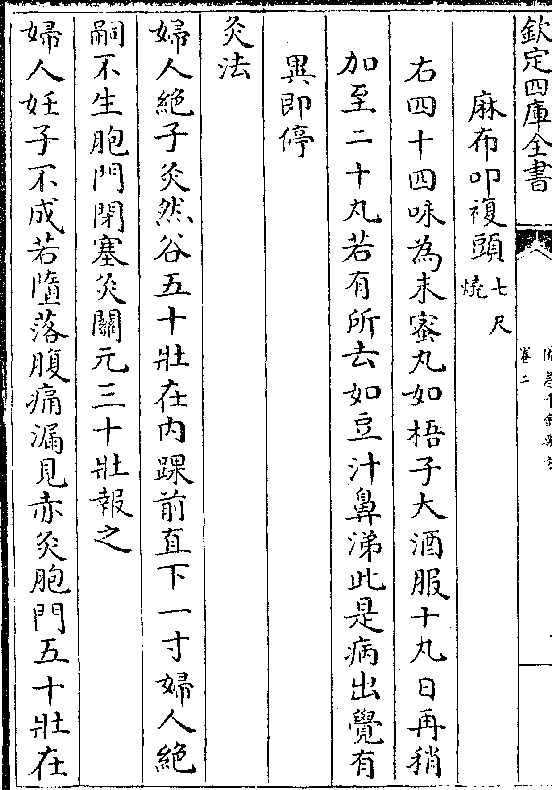 欽定四庫全書
卷二
麻布叩複頭七尺燒
右四十四味為末蜜丸如梧子大酒服十丸日再稍
加至二十丸若有所去如豆汁鼻涕此是病出覺有
異即停
灸法
婦人絶子灸然谷五十壯在内踝前直下一寸婦人絶
嗣不生胞門閉塞灸關元三十壯報之
婦人妊子不成若墮落腹痛漏見赤灸胞門五十壯在